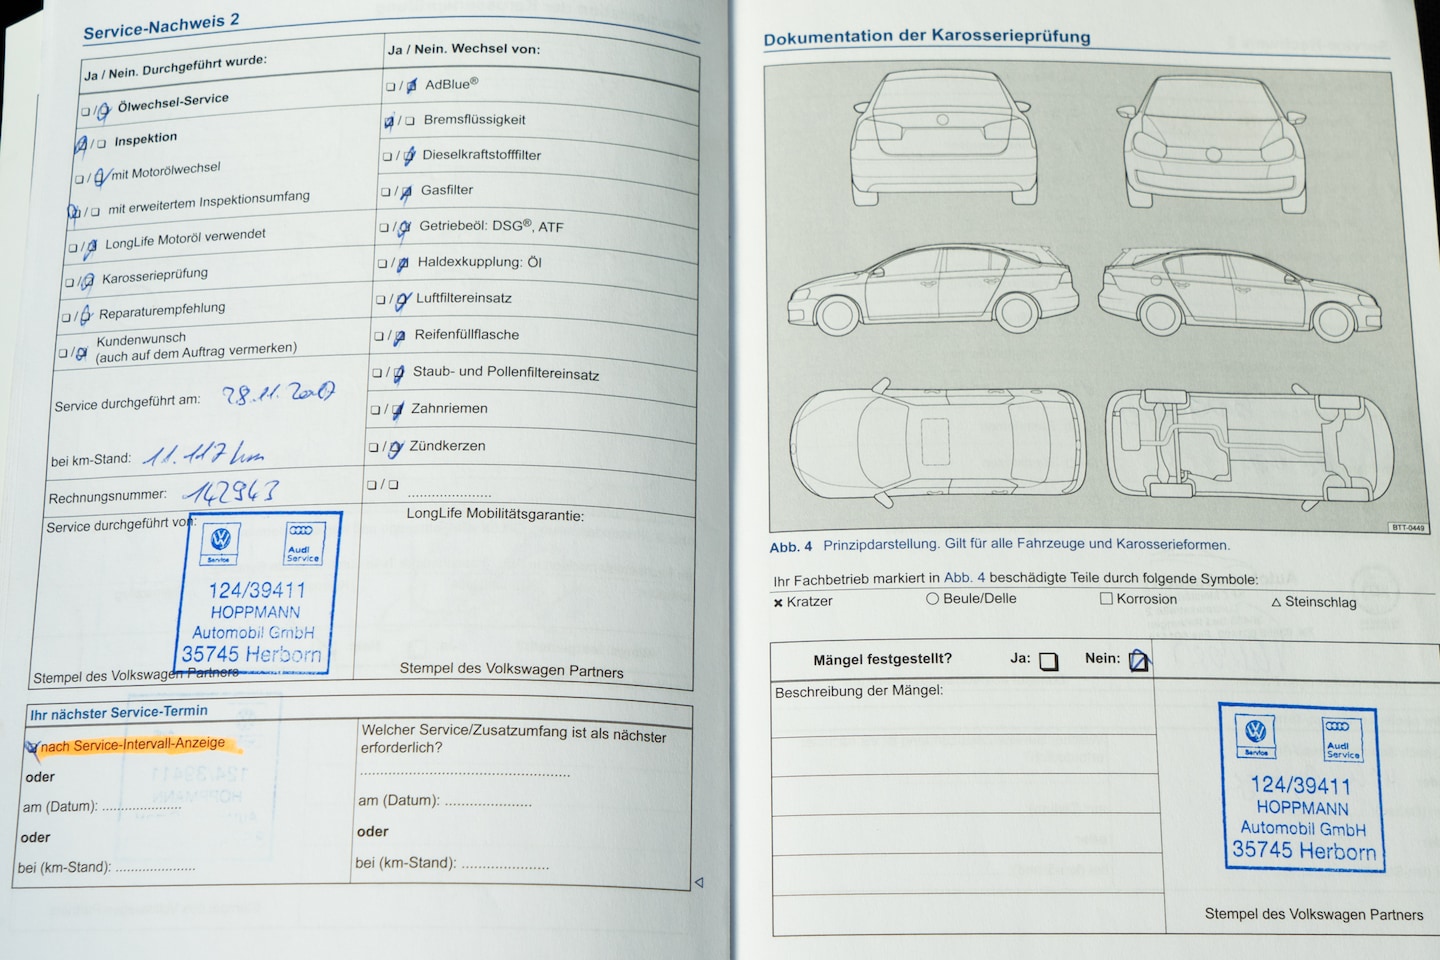 Service-Nachweis 2
Ja / Nein. Durchgeführt wurde:
Ölwechsel-Service
Inspektion
mit Motorölwechsel
mit erweitertem Inspektionsumfang
LongLife Motoröl verwendet
Karosserieprüfung
Reparaturempfehlung
Kundenwunsch
(auch auf dem Auftrag vermerken)
Service durchgeführt am: 28.11.2017
bei km-Stand: 11.117 km
Rechnungsnummer: 142943
Service durchgeführt von:
Service
Audi
Service
124/39411
HOPPMANN
Automobil GmbH
35745 Herborn
Stempel des Volkswagen Partners
Ja / Nein. Wechsel von:
AdBlue®
Bremsflüssigkeit
Dieselkraftstofffilter
Gasfilter
Getriebeöl: DSG®, ATF
Haldexkupplung: Öl
Luftfiltereinsatz
Reifenfüllflasche
Staub- und Pollenfiltereinsatz
Zahnriemen
Zündkerzen
LongLife Mobilitätsgarantie:
Stempel des Volkswagen Partners
Ihr nächster Service-Termin
nach Service-Intervall-Anzeige
oder
am (Datum):
oder
bei (km-Stand):
Welcher Service/Zusatzumfang ist als nächster
erforderlich?
am (Datum):
oder
bei (km-Stand):
Dokumentation der Karosserieprüfung
BTT-0449
Abb. 4 Prinzipdarstellung. Gilt für alle Fahrzeuge und Karosserieformen.
Ihr Fachbetrieb markiert in Abb. 4 beschädigte Teile durch folgende Symbole:
Kratzer
Beule/Delle
Korrosion
Steinschlag
Mängel festgestellt? Ja: Nein:
Beschreibung der Mängel:
Service
Audi
Service
124/39411
HOPPMANN
Automobil GmbH
35745 Herborn
Stempel des Volkswagen Partners